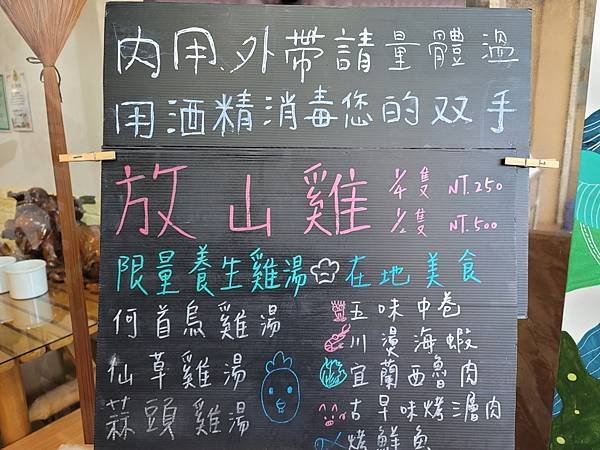 內用、外帶請量體溫
用酒精消毒您的双手
放山雞 1/4隻 NT.250
1/2隻 NT.500
限量養生雞湯 在地美食
何首烏雞湯
仙草雞湯
蒜頭雞湯
五味中卷
川燙海蝦
宜蘭西魯肉
古早味烤三層肉
烤鮮魚